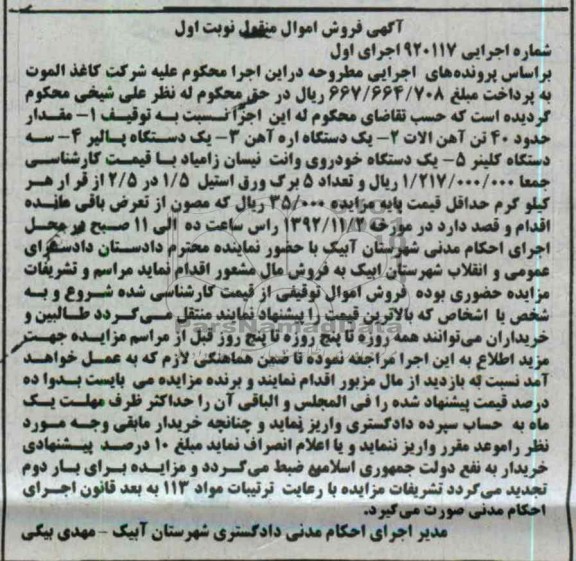 آگهی فروش اموال منقول نوبت اول
شماره اجرایی ۹۲۰۱۱۷ اجرای اول
براساس پرونده‌های اجرایی مطروحه دراین اجرا محکوم علیه شرکت کاغذ الموت
به پرداخت مبلغ ۶۶۷/۶۶۴/۷۰۸ ریال در حق محکوم له نظر علی شیخی محکوم
گردیده است که حسب تقاضای محکوم له این اجرا نسبت به توقیف ۱- مقدار
حدود ۴۰ تن آهن الات ۲- یک دستگاه اره آهن ۳- یک دستگاه پالیر ۴- سه
دستگاه کلینر ۵- یک دستگاه خودروی وانت نیسان زامیاد با قیمت کارشناسی
جمعا ۱/۲۱۷/۰۰۰/۰۰۰ ریال و تعداد ۵ برگ ورق استیل ۱/۵ در ۲/۵ از قرار هر
کیلو گرم حداقل قیمت پایه مزایده ۳۵/۰۰۰ ریال که مصون از تعرض باقی مانده
اقدام و قصد دارد در مورخه ۱۳۹۲/۱۱/۲۰ راس ساعت ده الی ۱۱ صبح در محل
اجرای احکام مدنی شهرستان آبیک با حضور نماینده محترم دادستان دادسرای
عمومی و انقلاب شهرستان ابیک به فروش مال مشعور اقدام نماید مراسم و تشریفات
مزایده حضوری بوده فروش اموال توقیفی از قیمت کارشناسی شده شروع و به
شخص یا اشخاص که بالاترین قیمت را پیشنهاد نمایند منتقل می‌گردد طالبین و
خریداران می‌توانند همه روزه تا پنج روزه تا پنج روز قبل از مراسم مزایده جهت
مزید اطلاع به این اجرا مراجعه نموده تا ضمن هماهنگی لازم که به عمل خواهد
آمد نسبت به بازدید از مال مزبور اقدام نمایند و برنده مزایده می بایست بدوا ده
درصد قیمت پیشنهاد شده را فی المجلس و الباقی آن را حداکثر ظرف مهلت یک
ماه به حساب سپرده دادگستری واریز نماید و چنانچه خریدار مابقی وجه مورد
نظر راموعد مقرر واریز ننماید و یا اعلام انصراف نماید مبلغ ۱۰ درصد پیشنهادی
خریدار به نفع دولت جمهوری اسلامی ضبط می‌گردد و مزایده برای بار دوم
تجدید می‌گردد تشریفات مزایده با رعایت ترتیبات مواد ۱۱۳ به بعد قانون اجرای
احکام مدنی صورت می‌گیرد.
مدیر اجرای احکام مدنی دادگستری شهرستان آبیک - مهدی بیکی
ParsNamadData